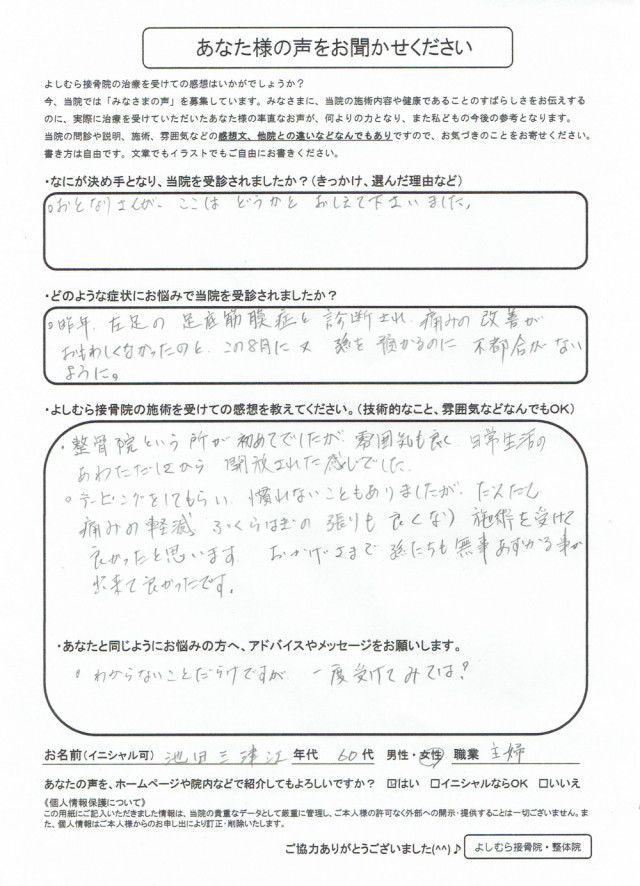 あなた様の声をお聞かせください
よしむら接骨院の治療を受けての感想はいかがでしょうか？
今、当院では「みなさまの声」を募集しています。みなさまに、当院の施術内容や健康であることのすばらしさをお伝えする
のに、実際に治療を受けていただいたあなた様の率直なお声が、何よりの力となり、また私どもの今後の参考となります。
当院の問診や説明、施術、雰囲気などの感想文、他院との違いなどなんでもありですので、お気づきのことをお寄せください。
書き方は自由です。文章でもイラストでもご自由にお書きください。
・なにが決め手となり、当院を受診されましたか？（きっかけ、選んだ理由など）
○おとなりさんが、ここは どうかと おしえて下さいました。
・どのような症状にお悩みで当院を受診されましたか？
○昨年、左足の 足底筋膜症と 診断され、痛みの 改善が
おもわしくなかったのと、この8月に又 孫を 預かるのに 不都合がない
ように。
・よしむら接骨院の施術を受けての感想を教えてください。（技術的なこと、雰囲気などなんでもOK）
・整骨院という 所が 初めてでしたが、雰囲気も良く 日常生活の
あわただしさから 開放された 感じでした。
○テーピングをしてもらい、慣れないこともありましたが、だんだん
痛みの 軽減 ふくらはぎの 張りも 良くなり 施術を受けて
良かったと思います。 おかげさまで 孫たちも 無事 あずかる事が
出来て良かったです。
・あなたと同じようにお悩みの方へ、アドバイスやメッセージをお願いします。
○ わからないことだらけですが 一度受けてみては？
お名前（イニシャル可） 池田三津江 年代 60代 男性・女性 職業 主婦
あなたの声を、ホームページや院内などで紹介してもよろしいですか？ ☑はい □イニシャルならOK □いいえ
《個人情報保護について》
この用紙にご記入いただきました情報は、当院の貴重なデータとして厳重に管理し、ご本人様の許可なく外部への開示・提供することは一切ございません。ま
た、個人情報はご本人様からのお申し出により訂正・削除いたします。
ご協力ありがとうございました(^^)♪ よしむら接骨院・整体院